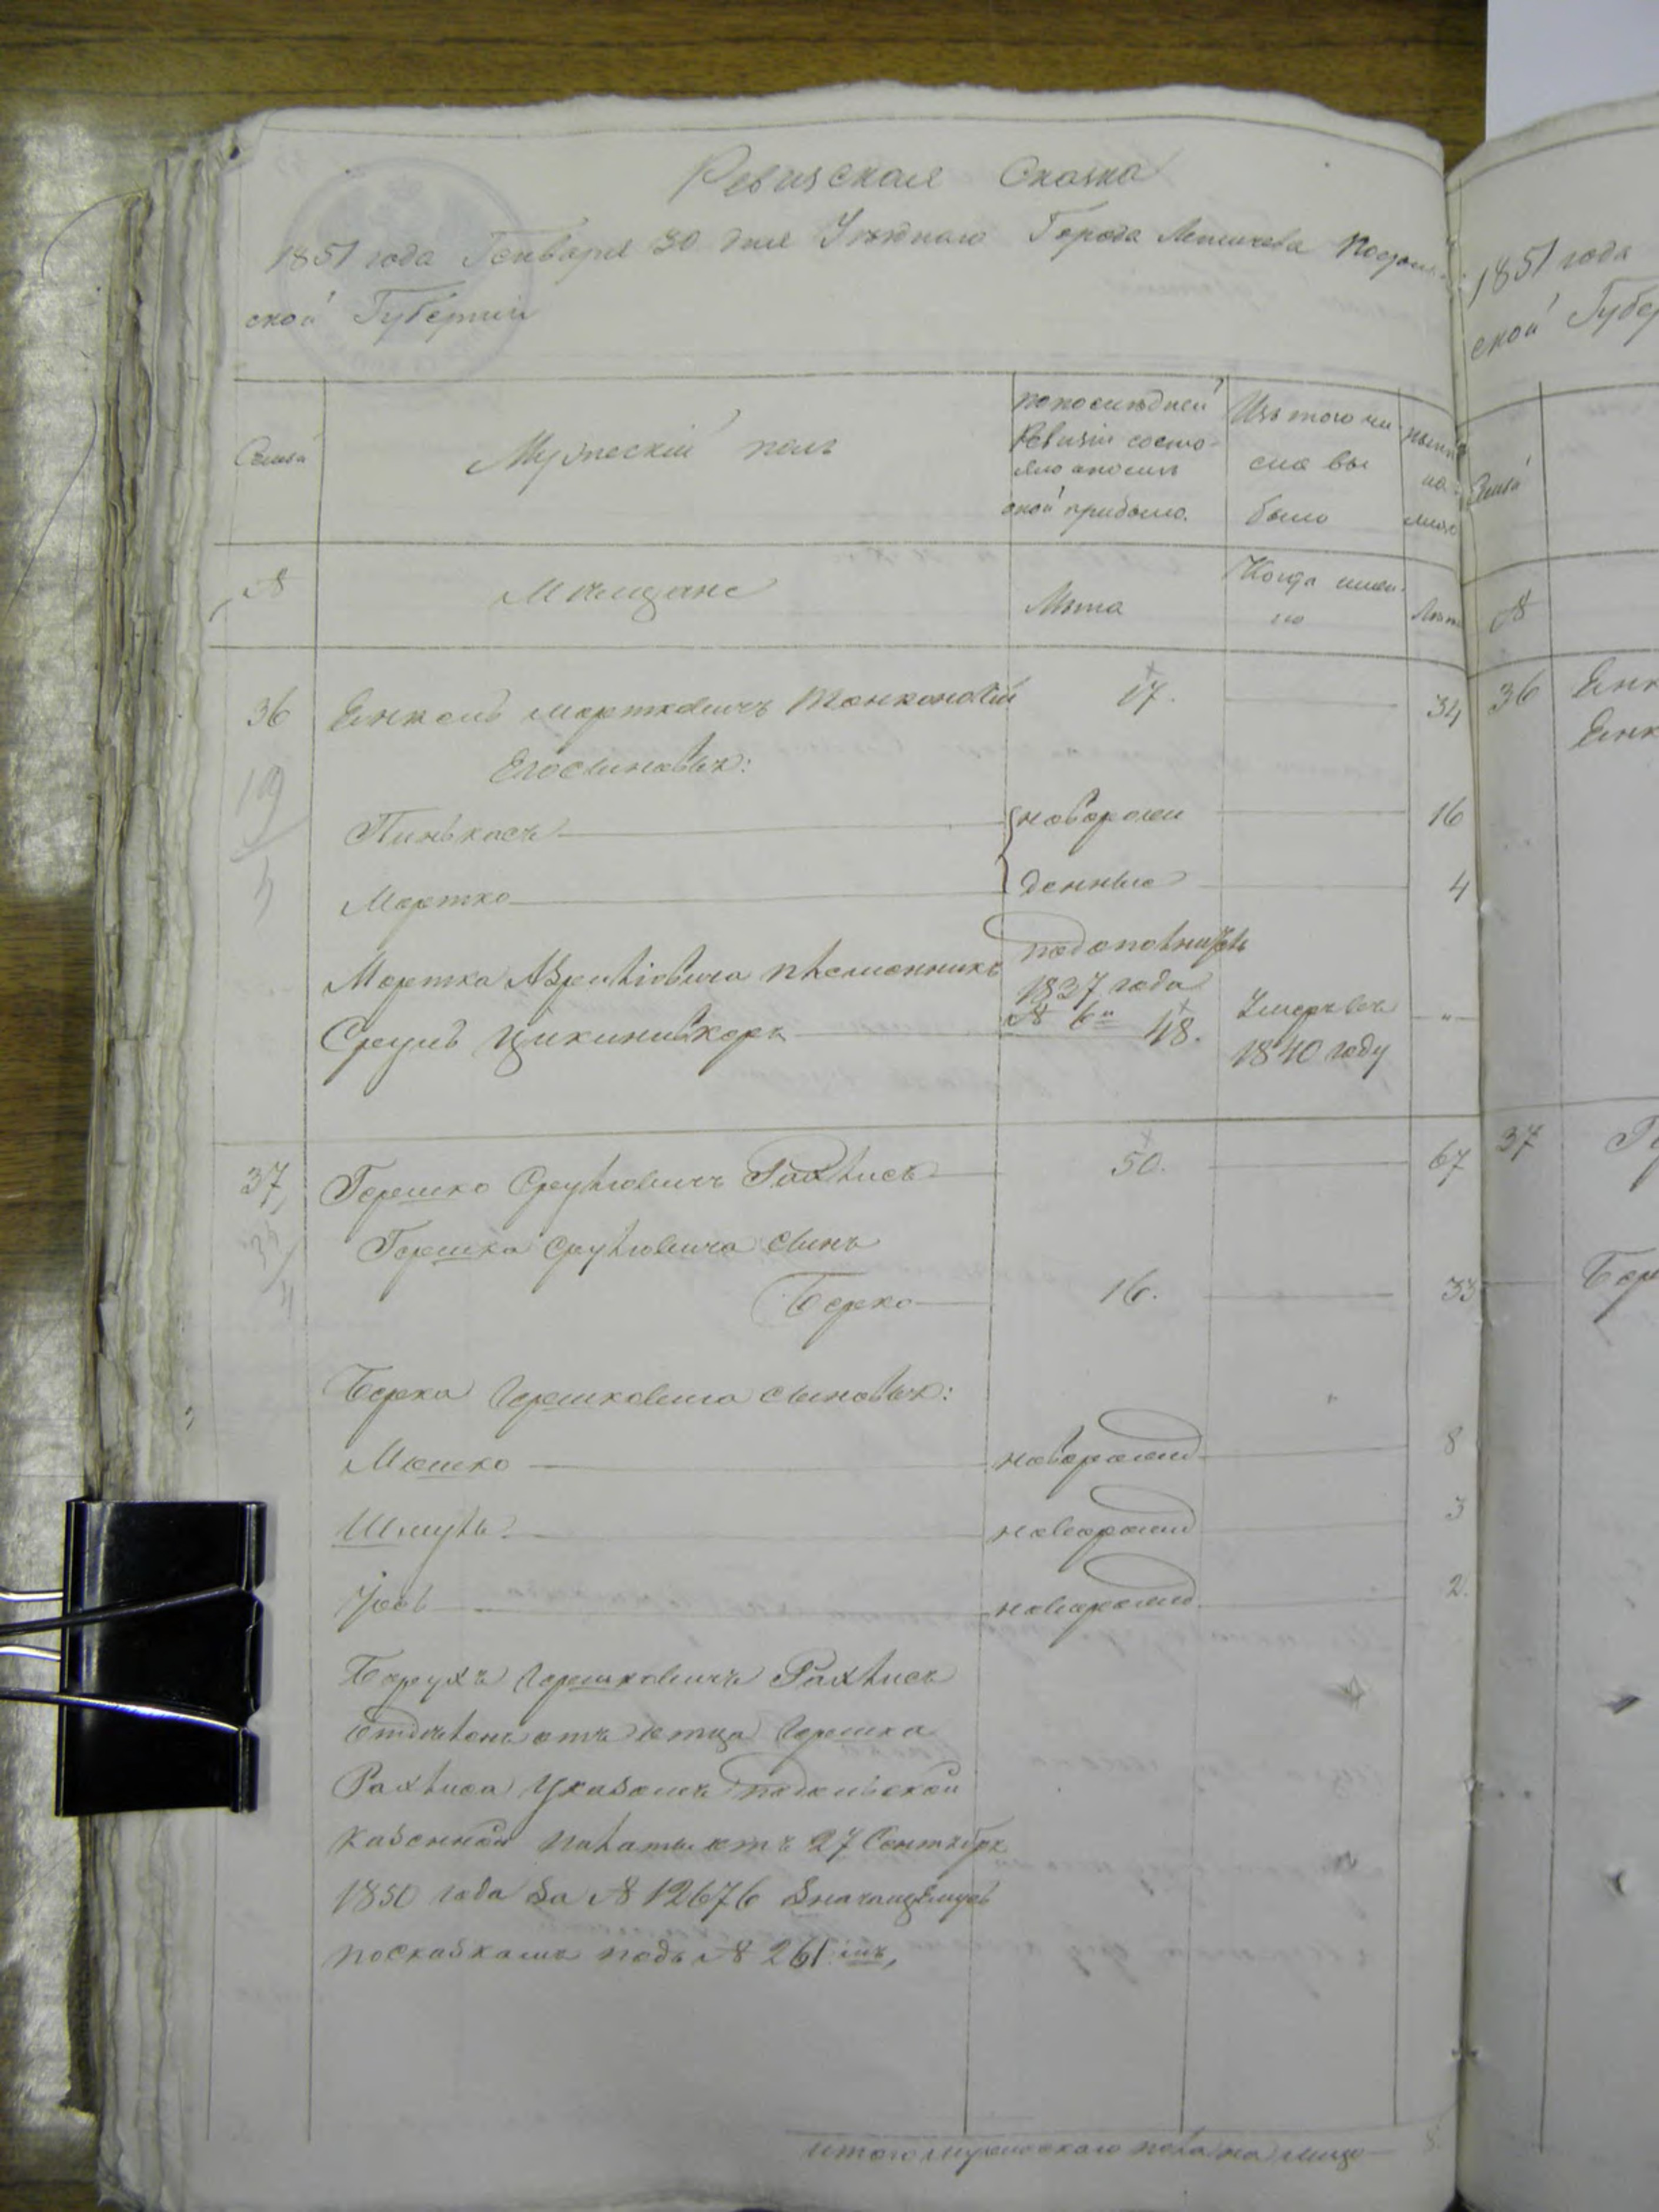 Ревизская Сказка
1851 года Генваря 30 дня Уѣзднаго Города Летичева Подоль-
ской Губерніи
Семьи
Мужескій полъ
по послѣдней
Ревизіи состо-
яло и послѣ
оной прибыло.
Изъ того чи
сла вы
было
нынѣ
на
лицо
№
Мѣщане
Лѣта
Когда имен-
но
Лѣта
36 Янкель Мортковичъ 17. 34
Его сыновья:
19
Пинькасъ новорож 16
Мортко денные 4
5
Мортка племянникъ по дополнит
1837 года
№ 6 48.
Сруль Умеръ въ „
1840 году
37 Гершко Срулiовичъ Рахлисъ 50. 67
Гершка Срулiовича сынъ
Берко 16. 33
Берка Гершковича сыновья:
Мошко новорожд 8
Шмуль новорожд 3
новорожд 2.
Борухъ Гершковичъ Рахлисъ
Отдѣленъ отъ Отца Гершка
Рахлиса Указомъ Подольской
Казенной Палаты отъ 27 Сентября
1850 года за № 12676
по сказкамъ подъ № 261 мъ,
Итого мужескаго пола на лицо 8.
1851 года
ской Губер
Семьи
№
36 Янк
Янк
37
Бер